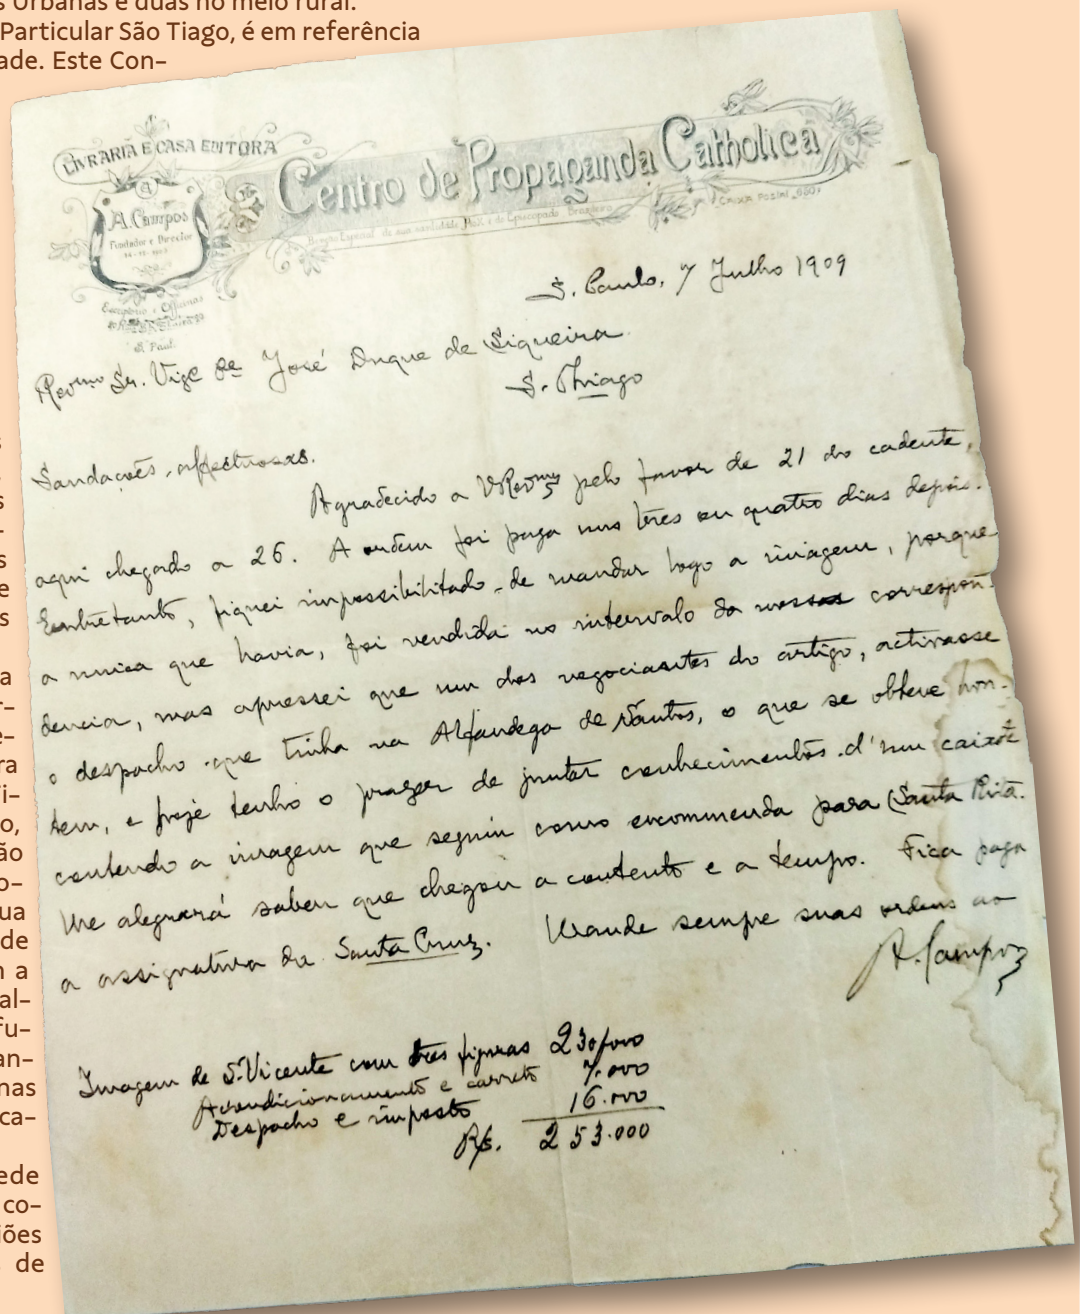 s Urbanas e duas no meio rural.
Particular São Tiago, é em referência
ade. Este Con-
s
-
s
e
s
a
r-
e-
ra
i-
o,
ão
o-
ua
de
n a
al-
fu-
an-
nas
ca-
ede
co-
iões
de
LIVRARIA E CASA EDITORA
Centro de Propaganda Catholica
A. Campos
Fundador e Director
Benção Especial de sua santidade Pio X e do Episcopado Brazileiro
CAIXA POSTAL
Escriptorio e Officinas
S. Paulo
S. Paulo, 7 Julho 1909
Revmo Snr. Vigº Pe José Duque de Siqueira
S. Thiago
Saudações affectuosas.
Agradecido a VRevma pelo favor de 21 do cadente,
aqui chegado a 26. A ordem foi paga uns tres ou quatro dias depois.
Entretanto, fiquei impossibilitado de mandar logo a imagem, porque
a unica que havia, foi vendida no intervalo da nossa correspon-
dencia, mas apressei que um dos negociantes do artigo, activasse
o despacho que tinha na Alfandega de Santos, o que se obteve hon-
tem, e hoje tenho o prazer de juntar conhecimento d'um caixote
contendo a imagem que seguiu como encommenda para Santa Rita.
Me alegrará saber que chegou a contento e a tempo. Fica paga
a assignatura da Santa Cruz. Mande sempre suas ordens ao
A. Campos
Imagem de S. Vicente com tres figuras 230/000
Acondicionamento e carreto 7.000
Despacho e imposto 16.000
Rs. 253.000